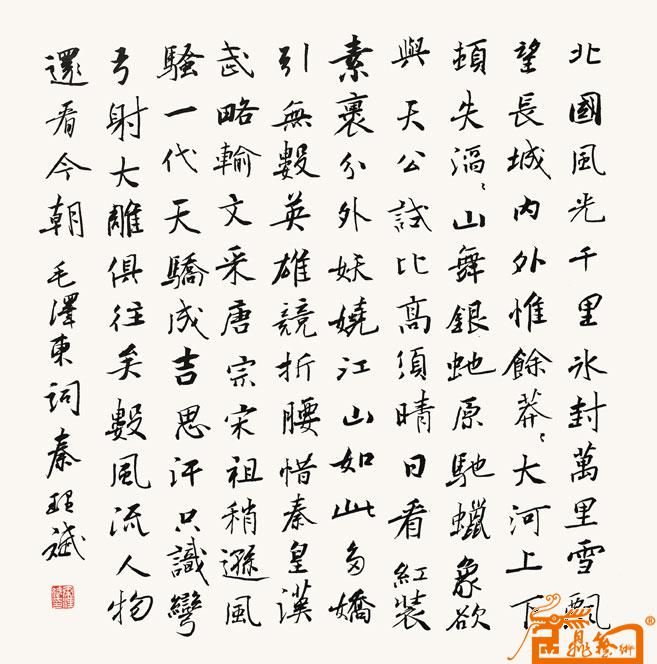 北國風光千里冰封萬里雪飄
望長城内外惟餘莽〻大河上下
頓失滔〻山舞銀虵原馳蠟象欲
與天公試比高須晴日看紅装
素裹分外妖嬈江山如此多嬌
引無數英雄競折腰惜秦皇漢
武略輸文采唐宗宋祖稍遜風
騷一代天驕成吉思汗只識彎
弓射大雕俱往矣數風流人物
還看今朝毛澤東詞秦理斌